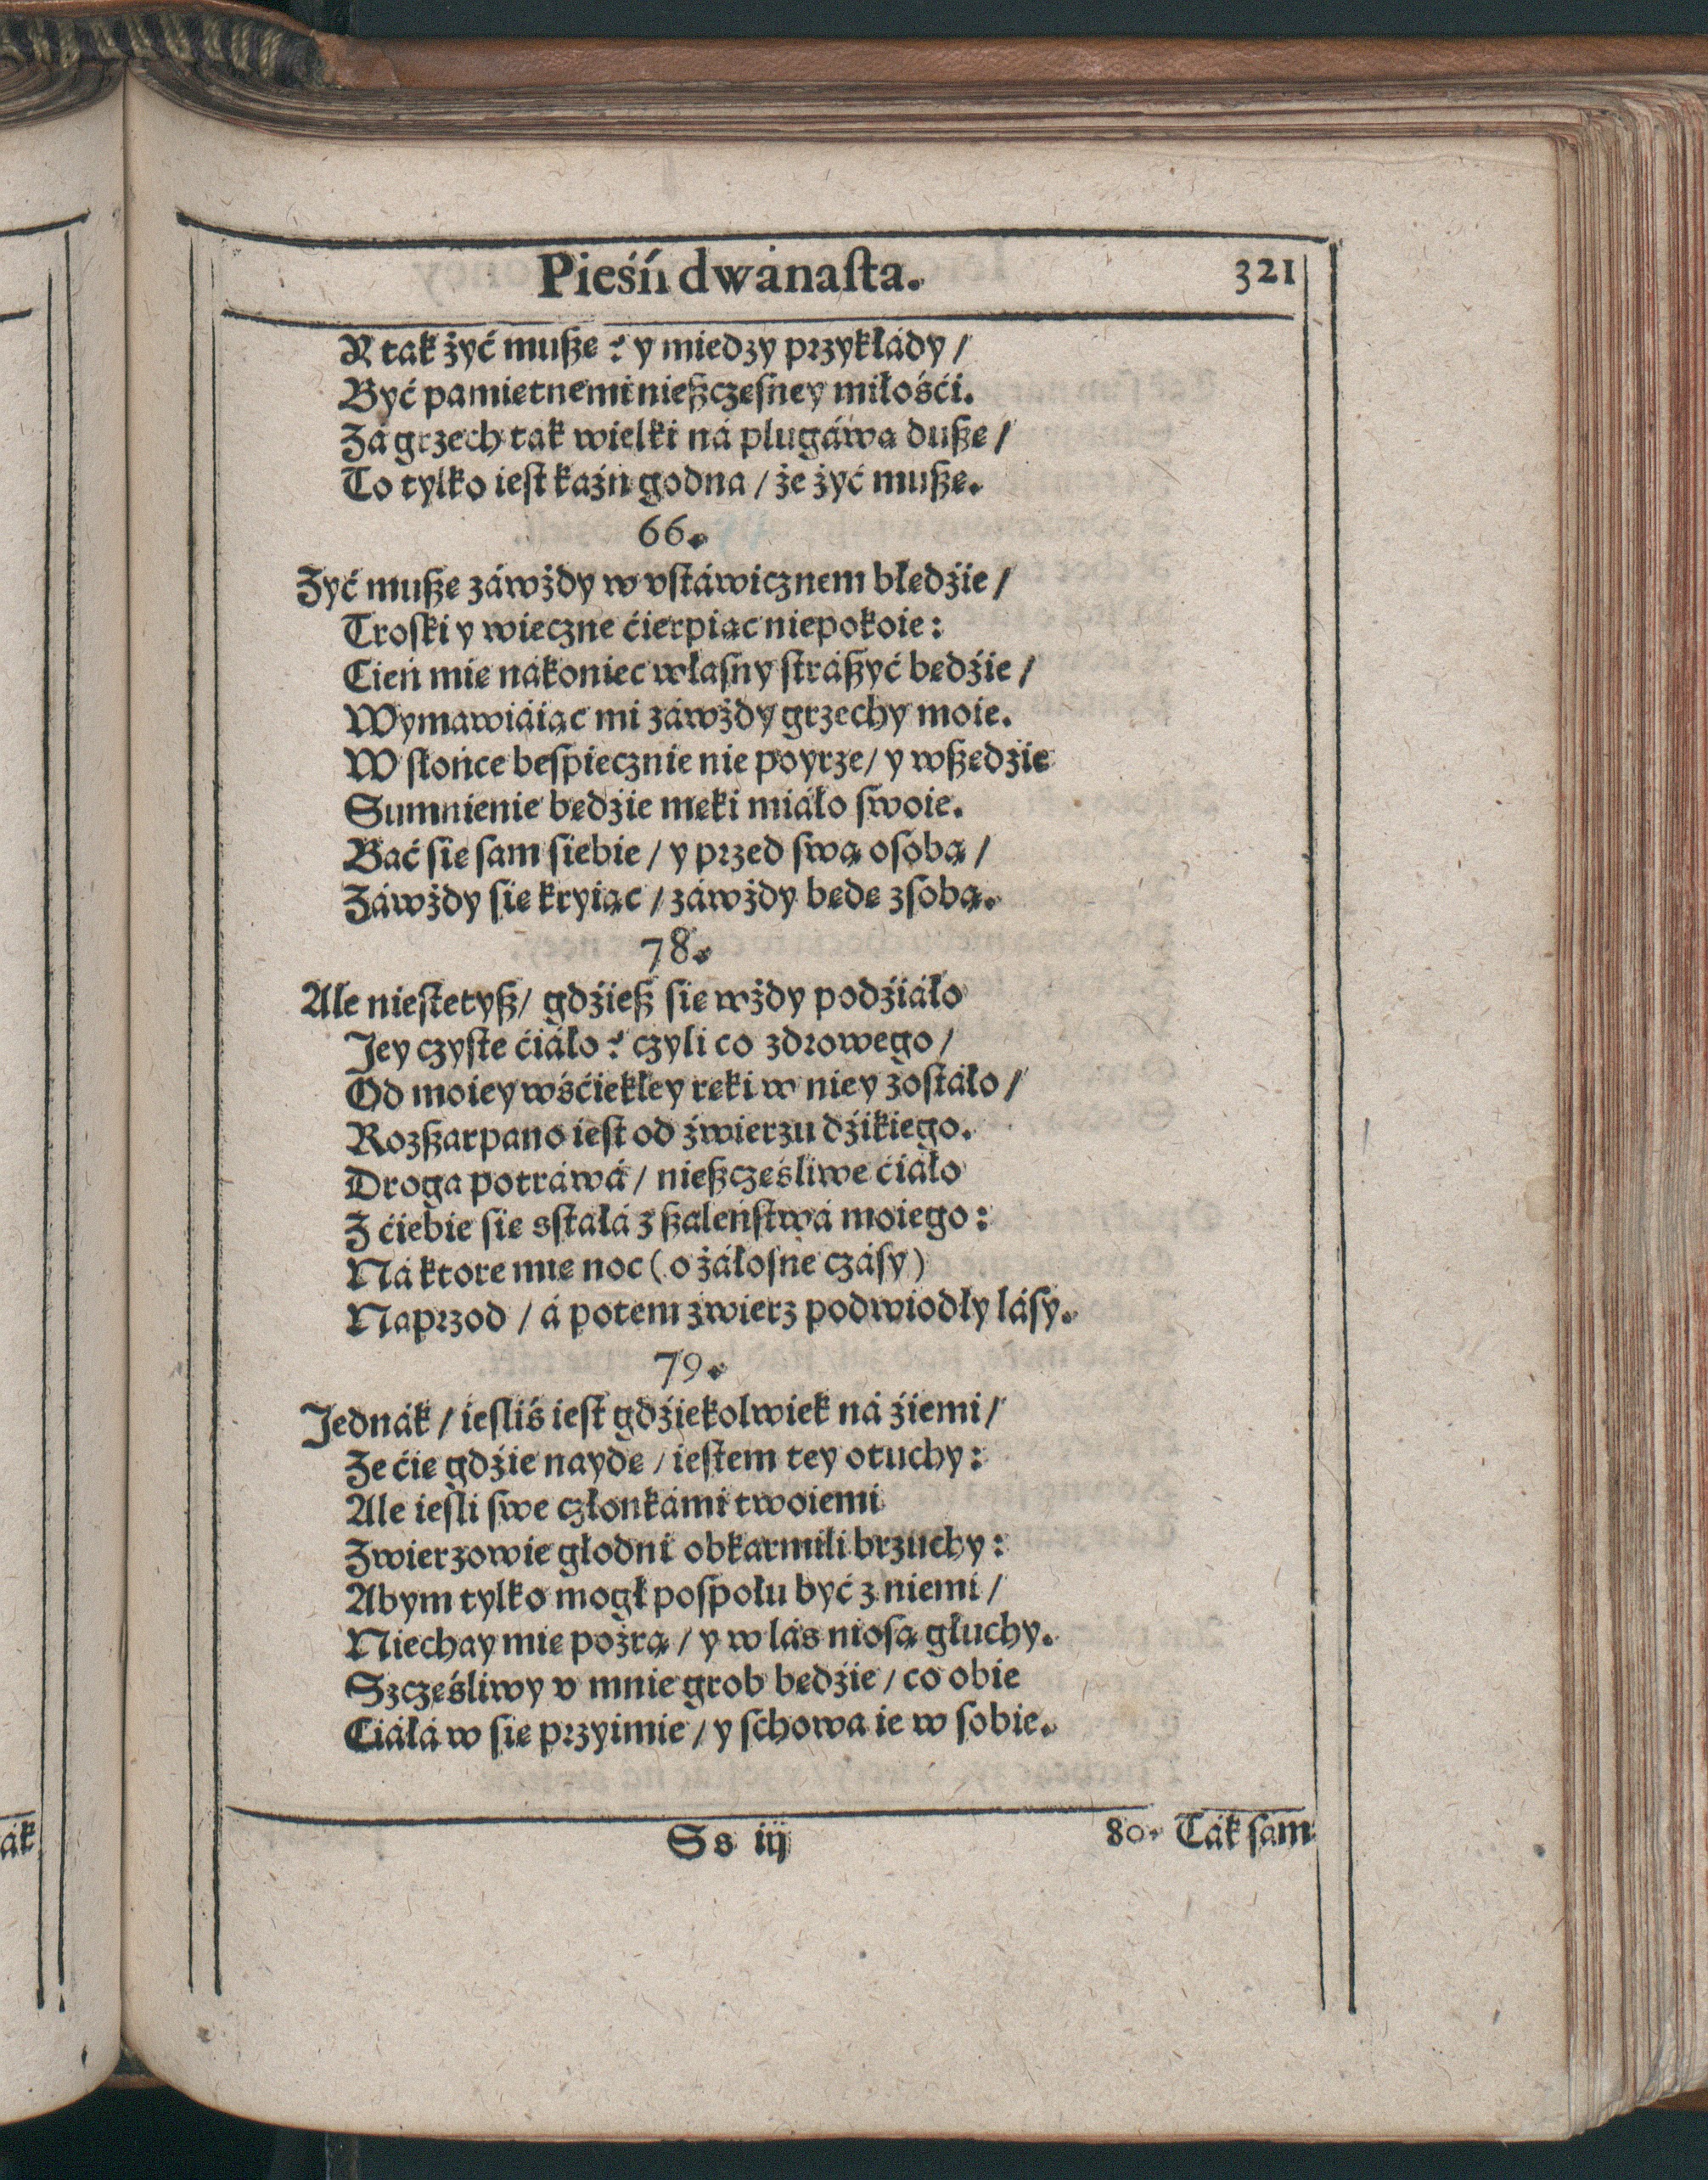 Pieśń dwánasta. 321
Y tak żyć musze? y miedzy przykłády /
Być pamietnemi nieszczesney miłośći.
Zá grzech tak wielki ná plugáwa dusze /
To tylko iest kaźń godna / że żyć musze.
66.
Zyć musze záwżdy w vstáwicznem błedźie /
Troski y wieczne ćierpiąc niepokoie:
Cień mie nákoniec własny strászyć bedźie /
Wymawiáiąc mi záwżdy grzechy moie.
W słońce bespiecznie nie poyrze / y wszedźie
Sumnienie bedźie meki miáło swoie.
Bać sie sam siebie / y przed swą osobą /
Záwżdy sie kryiąc / záwżdy bede zsobą.
78.
Ale niestetysz / gdźiesz sie wżdy podźiáło
Jey czyste ćiáło? czyli co zdrowego /
Od moiey wśćiekłey reki w niey zostáło /
Rozszarpano iest od źwierzu dźikiego.
Droga potráwá / nieszcześliwe ćiáło
Z ćiebie sie sstałá z szaleństwá moiego:
Ná ktore mie noc (o żáłosne czásy)
Naprzod / á potem źwierz podwiodły lásy.
79.
Jednák / iesliś iest gdźiekolwiek ná źiemi /
Ze ćie gdźie nayde / iestem tey otuchy:
Ale iesli swe członkámi twoiemi
Zwierzowie głodni obkarmili brzuchy:
Abym tylko mogł pospołu być z niemi /
Niechay mie pożrą / y w lás niosą głuchy.
Szcześliwy v mnie grob bedźie / co obie
Ciáłá w sie przyimie / y schowa ie w sobie.
Ss iij 80. Ták sam
ák